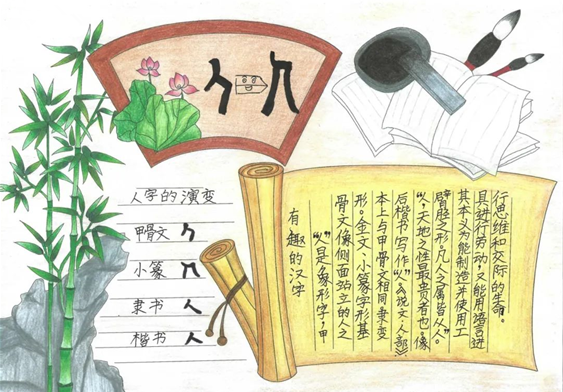 人字的演变
甲骨文
小篆
隶书 人
楷书 人
有趣的汉字
“人”是象形字，甲
骨文像侧面站立的人之
形。金文、小篆字形基
本上与甲骨文相同。隶变
后楷书写作“人”。《说文·人部》
“人，天地之性最贵者也。像
臂胫之形。凡人之属皆从人”。
其本义为能制造并使用工
具进行劳动，又能用语言进
行思维和交际的生命。